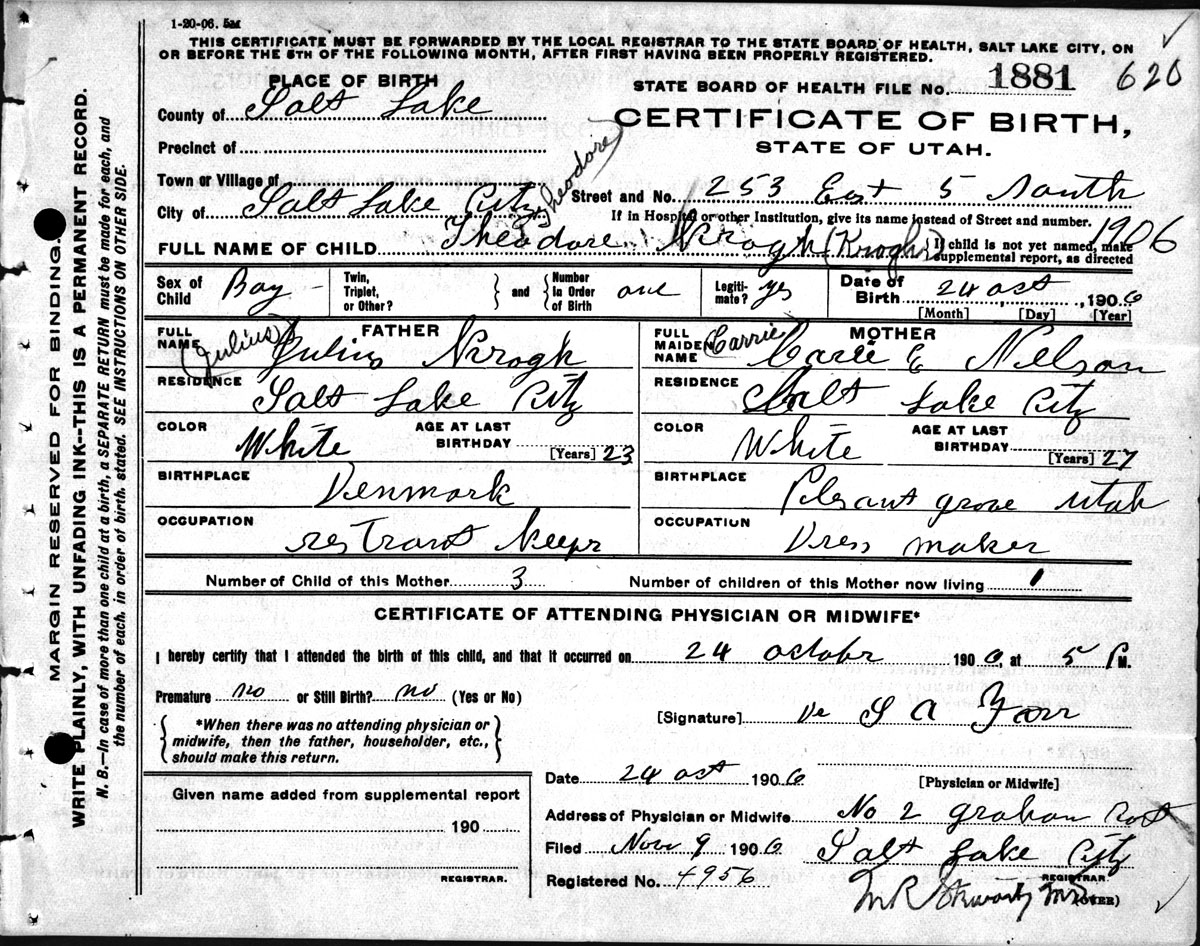 1-20-06. 5M
THIS CERTIFICATE MUST BE FORWARDED BY THE LOCAL REGISTRAR TO THE STATE BOARD OF HEALTH, SALT LAKE CITY, ON
OR BEFORE THE 5TH OF THE FOLLOWING MONTH, AFTER FIRST HAVING BEEN PROPERLY REGISTERED.
PLACE OF BIRTH
STATE BOARD OF HEALTH FILE NO. 1881 620
County of Salt Lake
CERTIFICATE OF BIRTH,
STATE OF UTAH.
Precinct of
Town or Village of
Theodore
Street and No. 253 East 5 South
City of Salt Lake City
If in Hospital or other Institution, give its name instead of Street and number.
1906
FULL NAME OF CHILD Theodore Krogh (Krogh)
If child is not yet named, make
supplemental report, as directed
Sex of Child Boy
Twin, Triplet, or Other? } and { Number In Order of Birth one
Legiti-mate? yes
Date of Birth 24 oct, 1906
[Month] [Day] [Year]
FATHER
FULL NAME (Julius) Julius Krogh
MOTHER
FULL MAIDEN NAME (Carrie) Carrie E Nelson
RESIDENCE Salt Lake City
RESIDENCE Salt Lake City
COLOR White AGE AT LAST BIRTHDAY [Years] 23
COLOR White AGE AT LAST BIRTHDAY [Years] 27
BIRTHPLACE Denmark
BIRTHPLACE Plesant grove Utah
OCCUPATION restrant Keepr
OCCUPATION Dress maker
Number of Child of this Mother 3 Number of children of this Mother now living 1
CERTIFICATE OF ATTENDING PHYSICIAN OR MIDWIFE*
I hereby certify that I attended the birth of this child, and that it occurred on 24 octobr 1906, at 5 P M.
Premature no or Still Birth? no (Yes or No)
{*When there was no attending physician or
midwife, then the father, householder, etc.,
should make this return.}
[Signature] S A Farr
[Physician or Midwife]
Date 24 oct 1906
Given name added from supplemental report
190
REGISTRAR.
Address of Physician or Midwife No 2 graham
Filed Nov 9 1906 Salt Lake City
Registered No. 4956
REGISTRAR.
MARGIN RESERVED FOR BINDING.
WRITE PLAINLY, WITH UNFADING INK--THIS IS A PERMANENT RECORD.
N. B.—In case of more than one child at a birth, a SEPARATE RETURN must be made for each, and
the number of each, in order of birth, stated. SEE INSTRUCTIONS ON OTHER SIDE.